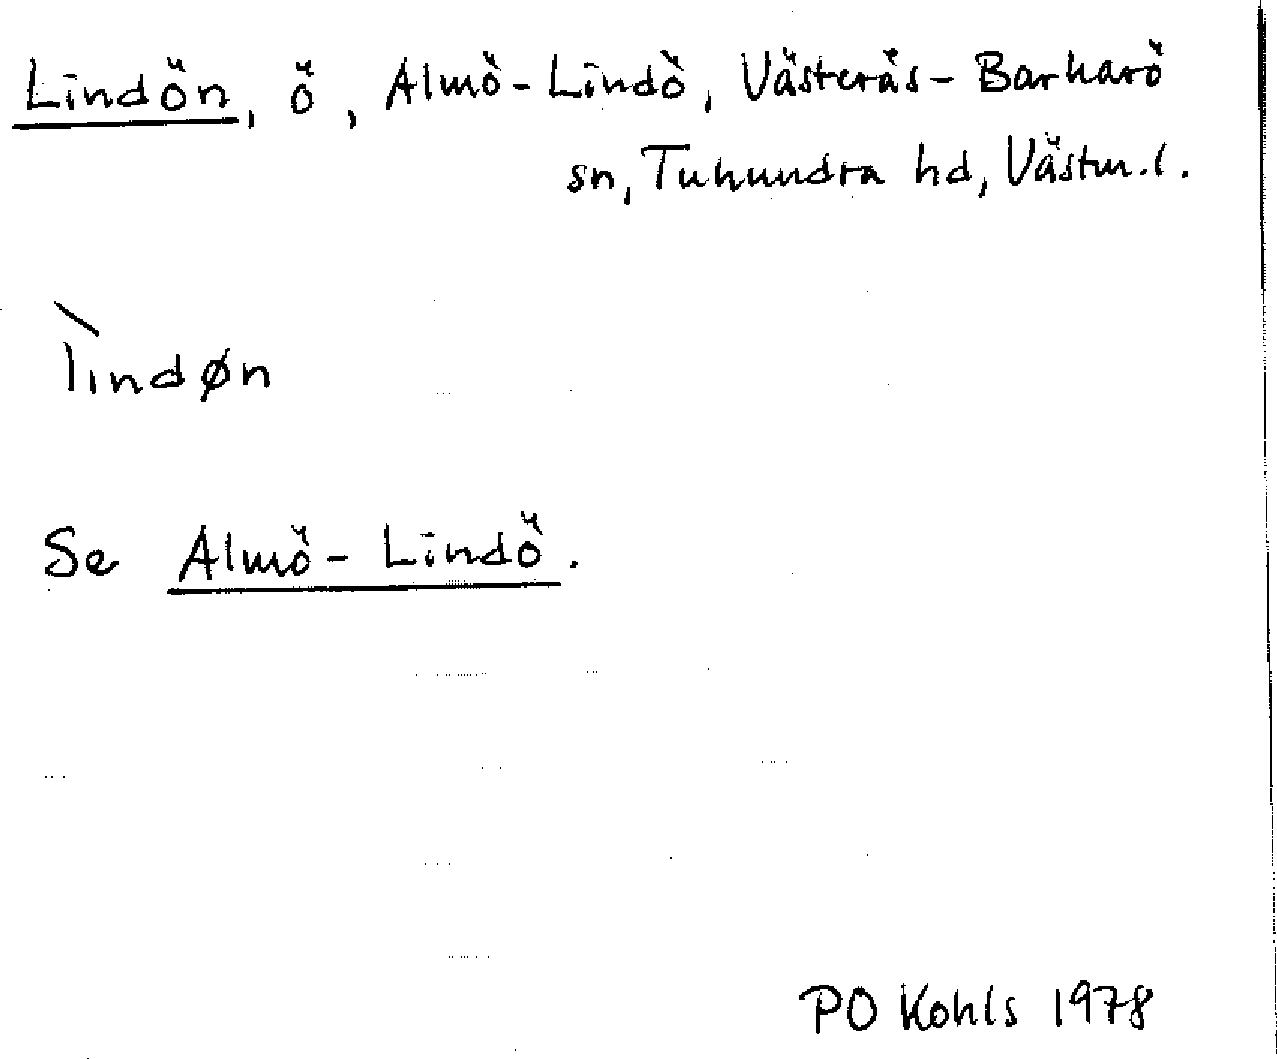 Lindön, ö, Almö-Lindö, Västerås-Barkarö
sn, Tuhundra hd, Västm.l.
`lindøn
Se Almö-Lindö.
PO Kohls 1978